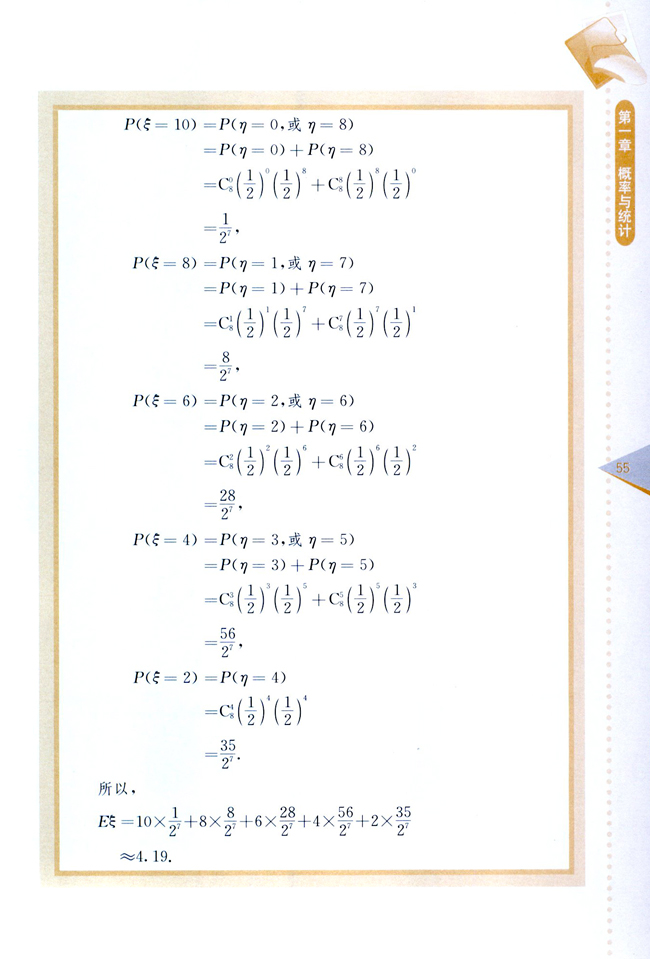 P(ξ=10)=P(η=0,或 η=8)
=P(η=0)+P(η=8)
=C₈⁰(1/2)⁰(1/2)⁸+C₈⁸(1/2)⁸(1/2)⁰
=1/2⁷,
P(ξ=8)=P(η=1,或 η=7)
=P(η=1)+P(η=7)
=C₈¹(1/2)¹(1/2)⁷+C₈⁷(1/2)⁷(1/2)¹
=8/2⁷,
P(ξ=6)=P(η=2,或 η=6)
=P(η=2)+P(η=6)
=C₈²(1/2)²(1/2)⁶+C₈⁶(1/2)⁶(1/2)²
=28/2⁷,
P(ξ=4)=P(η=3,或 η=5)
=P(η=3)+P(η=5)
=C₈³(1/2)³(1/2)⁵+C₈⁵(1/2)⁵(1/2)³
=56/2⁷,
P(ξ=2)=P(η=4)
=C₈⁴(1/2)⁴(1/2)⁴
=35/2⁷.
所以,
Eξ=10×1/2⁷+8×8/2⁷+6×28/2⁷+4×56/2⁷+2×35/2⁷
≈4.19.
第一章 概率与统计
55